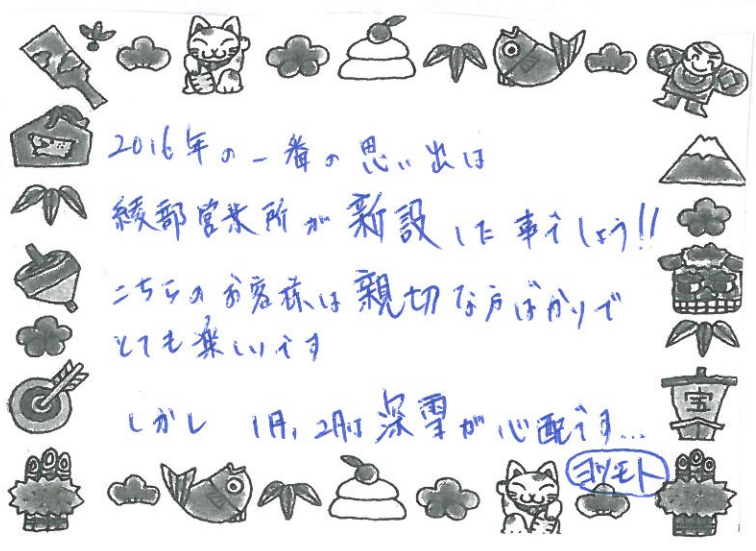 2016年の一番の思い出は
綾部営業所が新設した事でしょう!!
こちらのお客様は親切な方ばかりで
とても楽しいです
しかし 1月,2月は深雪が心配です...
ヨツモト
宝